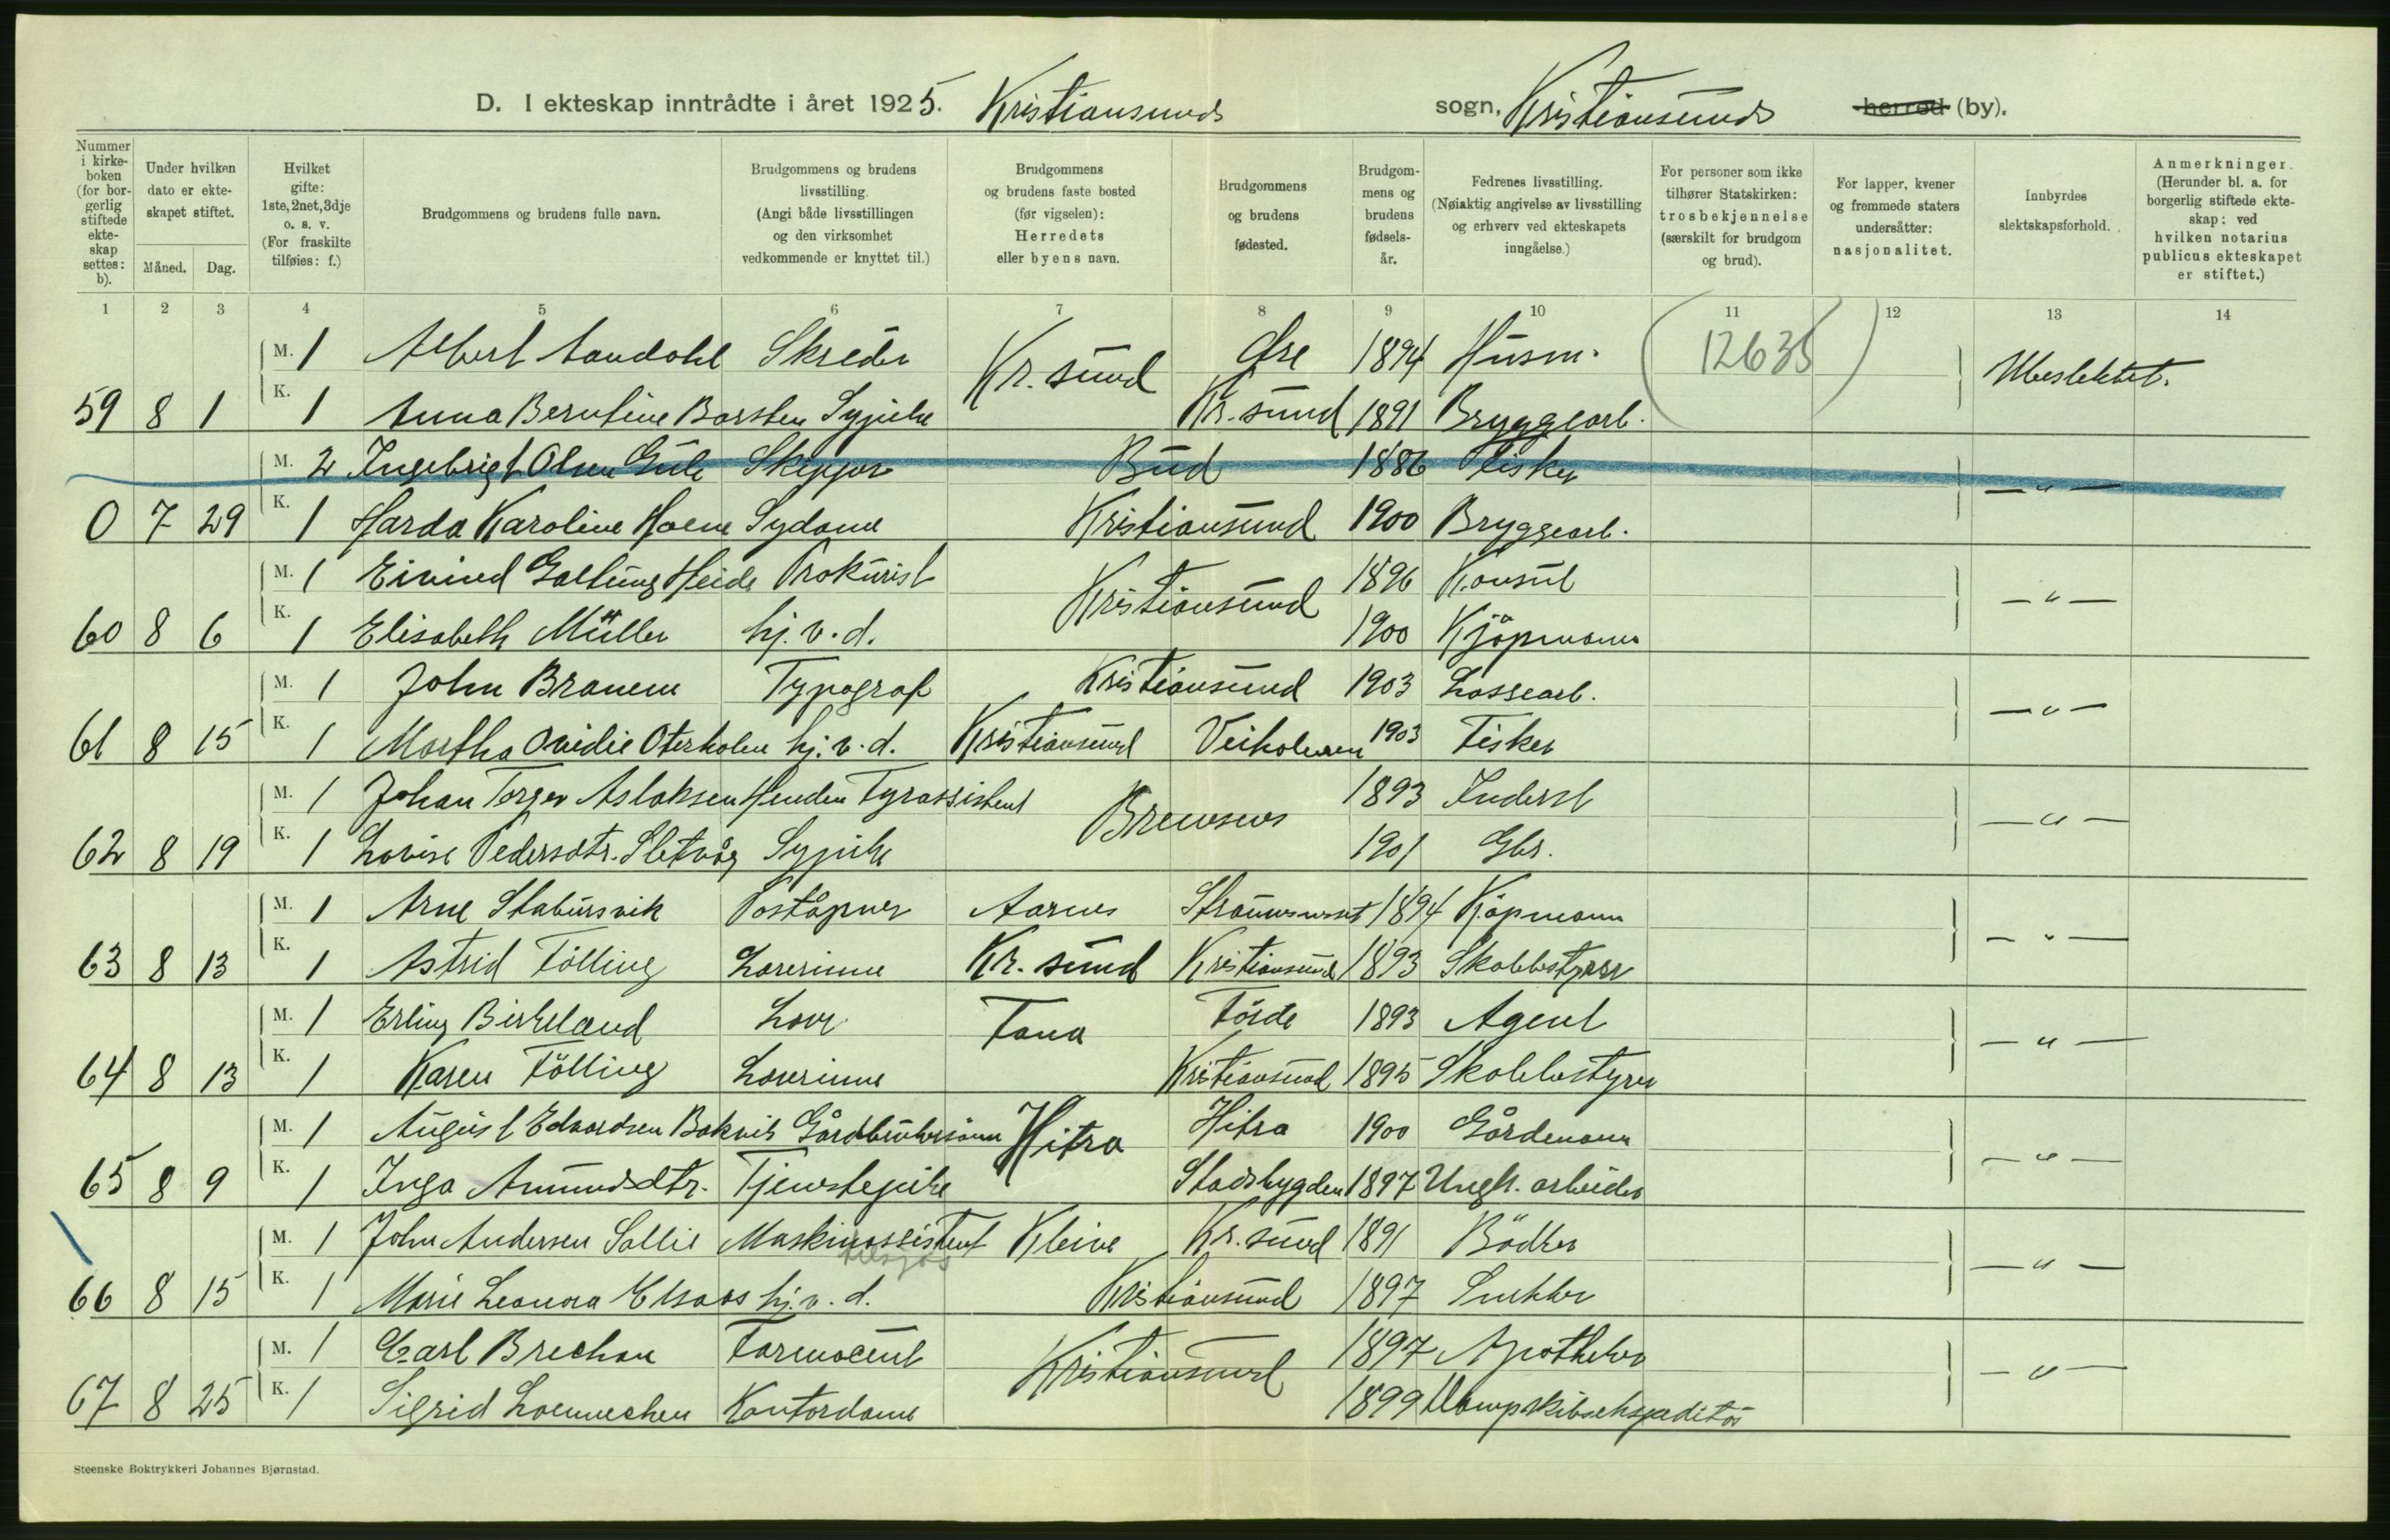 D. I ekteskap inntrådte i året 1925. Kristiansunds sogn, Kristiansunds herred (by).
Nummer i kirke-boken (for bor-gerlig stiftede ekte-skap settes: b).
Under hvilken dato er ekte-skapet stiftet.
Måned. Dag.
Hvilket gifte: 1ste, 2net, 3dje o. s. v. (For fraskilte tilføies: f.)
Brudgommens og brudens fulle navn.
Brudgommens og brudens livsstilling. (Angi både livsstillingen og den virksomhet vedkommende er knyttet til.)
Brudgommens og brudens faste bosted (før vigselen): Herredets eller byens navn.
Brudgommens og brudens fødested.
Brudgom-mens og brudens fødsels-år.
Fedrenes livsstilling. (Nøiaktig angivelse av livsstilling og erhverv ved ekteskapets inngåelse.)
For personer som ikke tilhører Statskirken: trosbekjennelse (særskilt for brudgom og brud).
For lapper, kvener og fremmede staters undersåtter: nasjonalitet.
Innbyrdes slektskapsforhold.
Anmerkninger. (Herunder bl. a. for borgerlig stiftede ekte-skap: ved hvilken notarius publicus ekteskapet er stiftet.)
1 2 3 4 5 6 7 8 9 10 11 12 13 14
M. 1 Albert Aandahl Skreder Kr. sund Øre 1894 Husm. (12635) Ubeslektet.
59 8 1 K. 1 Anna Berntine Barsten Sypike Kr. sund 1891 Bryggearb.
M. 2 Ingebrigt Olsen Gule Skipper Bud 1886 Fisker — " —
0 7 29 K. 1 Harda Karoline Hoene Sydame Kristiansund 1900 Bryggearb.
M. 1 Eivind Galtung Heide Prokurist Kristiansund 1896 Konsul — " —
60 8 6 K. 1 Elisabeth Müller hj. v. d. 1900 Kjøpmann
M. 1 John Branem Typograf Kristiansund 1903 Lossearb. — " —
61 8 15 K. 1 Martha Ovidie Oterholm hj. v. d. Kristiansund Veiholmen 1903 Fisker
M. 1 Johan Torger Aslaksen Henden Fyrassistent Bremsnes 1893 Inderst — " —
62 8 19 K. 1 Lovise Pedersdtr. Sletvåg Sypike 1901 Gbr.
M. 1 Arne Stabursvik Poståpner Aarnes Straumsneset 1894 Kjøpmann — " —
63 8 13 K. 1 Astrid Følling Lærerinne Kr. sund Kristiansund 1893 Skolebestyrer
M. 1 Erling Birkeland Lærer Tana Förde 1893 Agent — " —
64 8 13 K. 1 Karen Følling Lærerinne Kristiansund 1895 Skolebestyrer
M. 1 August Edvardsen Bakvik Gårdbrukersønn Hitra Hitra 1900 Gårdmann — " —
65 8 9 K. 1 Inga Amundsdtr. Tjenestepike Stadsbygden 1897 Ungk. arbeider
M. 1 John Andersen Sollie Maskinassistent Kleive Kr. sund 1891 Bödker — " —
66 8 15 K. 1 Marie Leonora hj. v. d. Kristiansund 1897 Snekker
M. 1 Carl Brechan Farmaceut Kristiansund 1897 Apotheker — " —
67 8 25 K. 1 Sigrid Loennechen Kontordame 1899 Dampskibsekspeditør
Steenske Boktrykkeri Johannes Bjørnstad.